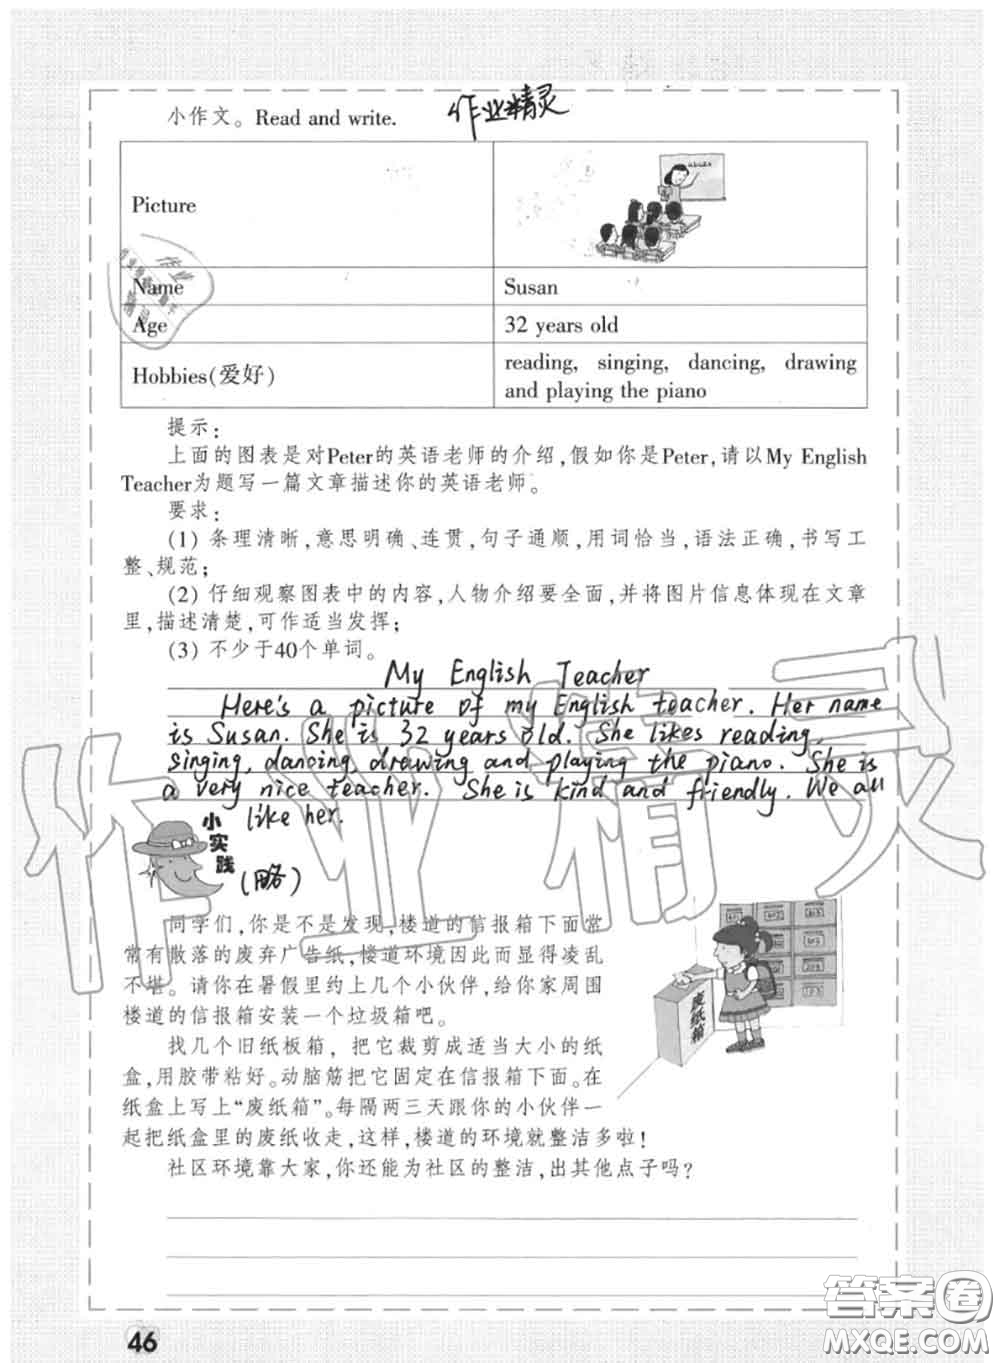 小作文。Read and write.
作业精灵
Picture
Name
Susan
Age
32 years old
Hobbies(爱好)
reading, singing, dancing, drawing
and playing the piano
提示:
上面的图表是对Peter的英语老师的介绍,假如你是Peter,请以My English
Teacher为题写一篇文章描述你的英语老师。
要求:
(1) 条理清晰,意思明确、连贯,句子通顺,用词恰当,语法正确,书写工
整、规范;
(2) 仔细观察图表中的内容,人物介绍要全面,并将图片信息体现在文章
里,描述清楚,可作适当发挥;
(3) 不少于40个单词。
My English Teacher
Here's a picture of my English teacher. Her name
is Susan. She is 32 years old. She likes reading,
singing, dancing, drawing and playing the piano. She is
a very nice teacher. She is kind and friendly. We all
like her.
小实践
(略)
同学们,你是不是发现,楼道的信报箱下面常
常有散落的废弃广告纸,楼道环境因此而显得凌乱
不堪。请你在暑假里约上几个小伙伴,给你家周围
楼道的信报箱安装一个垃圾箱吧。
找几个旧纸板箱, 把它裁剪成适当大小的纸
盒,用胶带粘好。动脑筋把它固定在信报箱下面。在
纸盒上写上“废纸箱”。每隔两三天跟你的小伙伴一
起把纸盒里的废纸收走,这样,楼道的环境就整洁多啦!
社区环境靠大家,你还能为社区的整洁,出其他点子吗?
废纸箱
作业精灵
46
答案卷
MXQE.COM